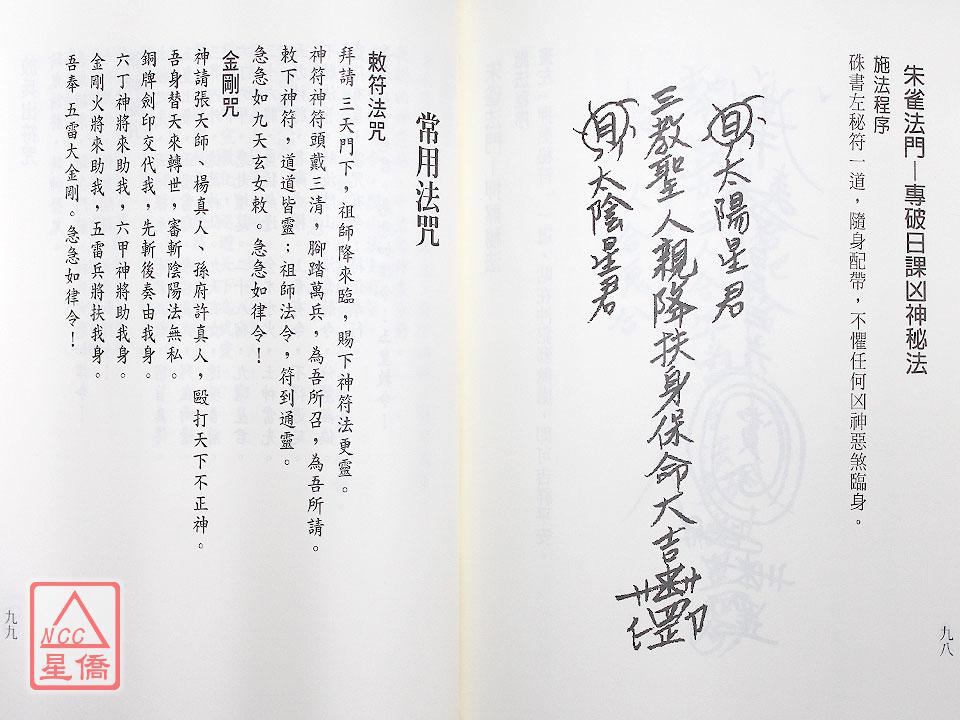 朱雀法門—專破日課凶神秘法
施法程序
硃書左秘符一道，隨身配帶，不懼任何凶神惡煞臨身。
太陽星君
三教聖人親降扶身保命大吉
太陰星君
九八
常用法咒
敕符法咒
拜請 三天門下，祖師降來臨，賜下神符法更靈。
神符神符頭戴三清，腳踏萬兵，為吾所召，為吾所請。
敕下神符，道道皆靈；祖師法令，符到通靈。
急急如九天玄女敕。急急如律令！
金剛咒
神請張天師、楊真人、孫府許真人，毆打天下不正神。
吾身替天來轉世，審斬陰陽法無私。
銅牌劍印交代我，先斬後奏由我身。
六丁神將來助我，六甲神將助我身。
金剛火將來助我，五雷兵將扶我身。
吾奉 五雷大金剛。急急如律令！
九九
NCC
星僑